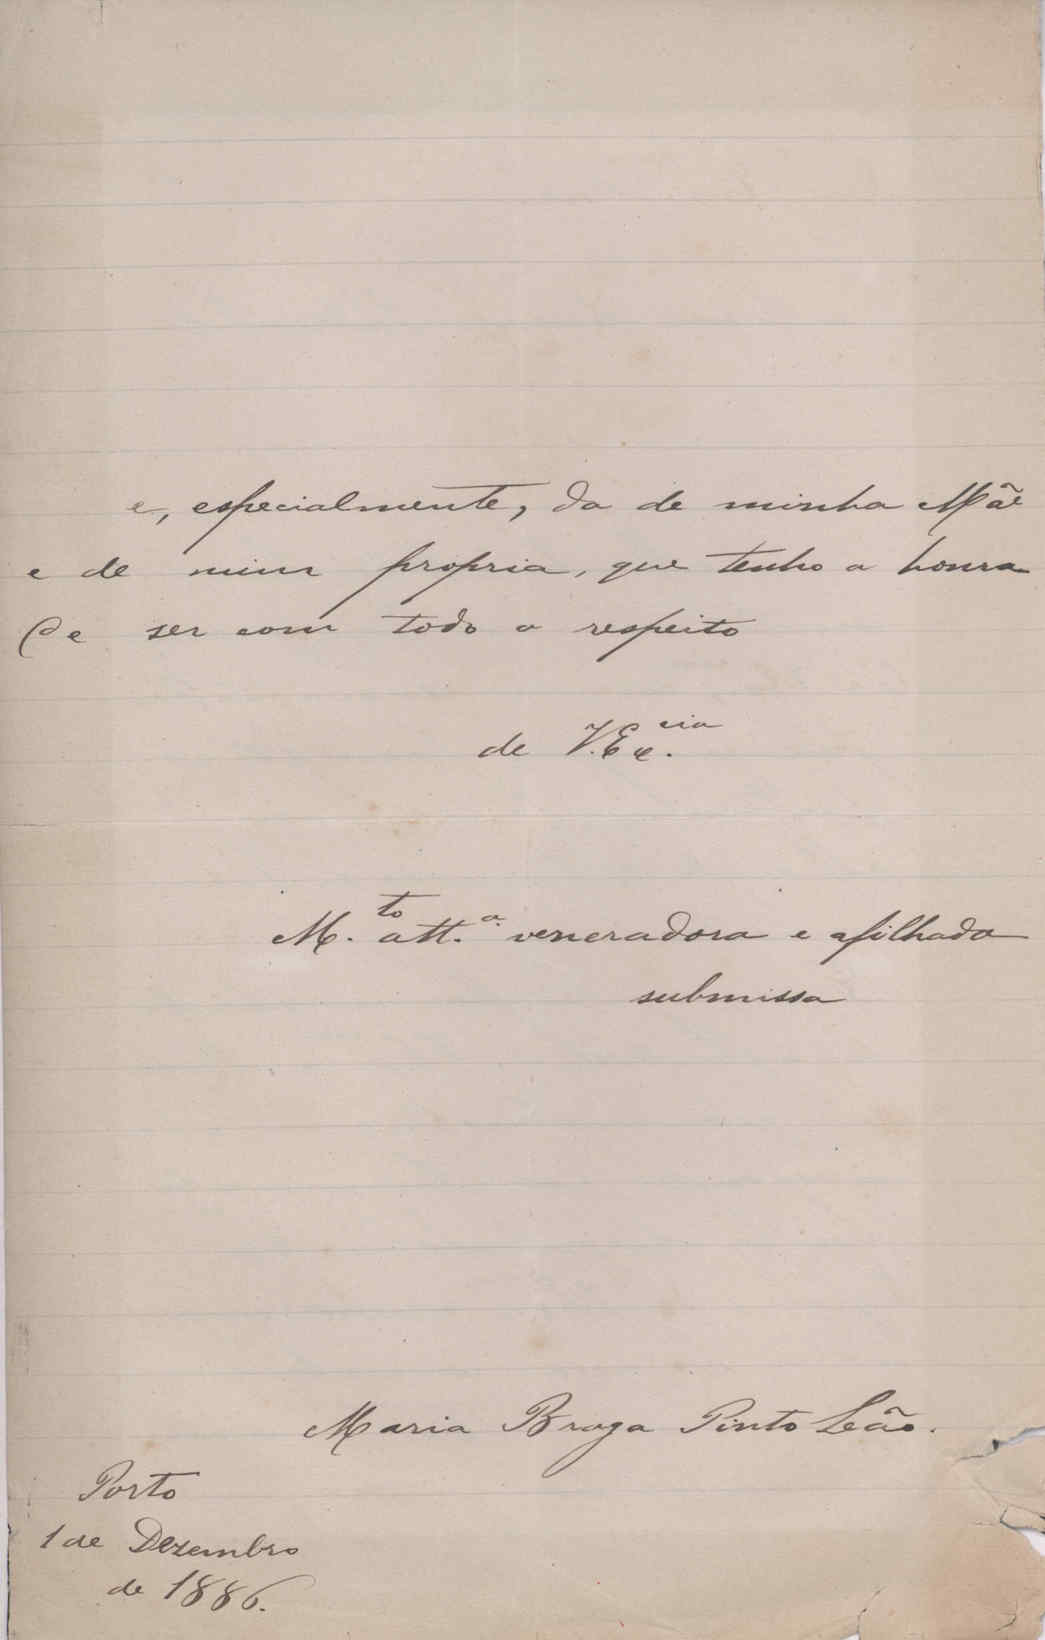 e, especialmente, da de minha Mãe
e de mim propria, que tenho a honra
de ser com todo o respeito
de V. Ex.cia
M.to att.a veneradora e afilhada
submissa
Maria Braga Pinto Leão.
Porto
1 de Dezembro
de 1886.